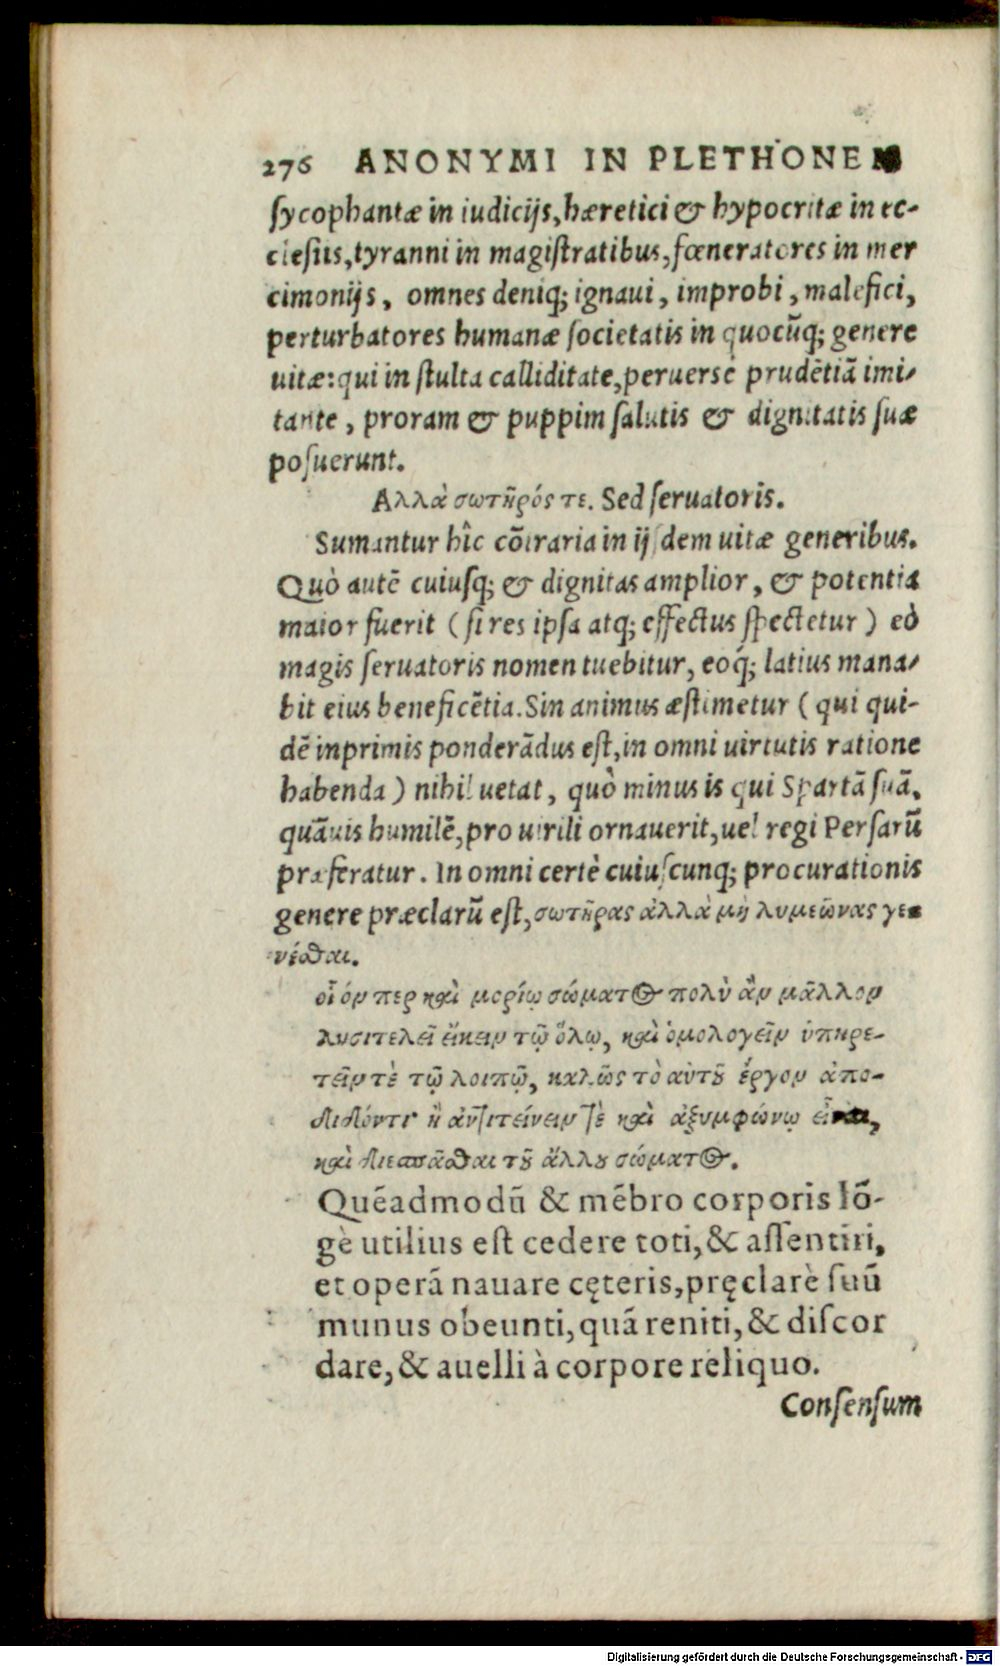 276 ANONYMI IN PLETHONEM
sycophantæ in iudicijs, hæretici & hypocritæ in ec-
clesiis, tyranni in magistratibus, fœneratores in mer
cimonijs, omnes deniq; ignaui, improbi, malefici,
perturbatores humanæ societatis in quocūq; genere
uitæ: qui in stulta calliditate, peruersè prudētiā imi-
tante, proram & puppim salutis & dignitatis suæ
posuerunt.
Αλλὰ σωτῆρός τε. Sed seruatoris.
Sumantur hîc cōtraria in ijsdem uitæ generibus.
Quò autē cuiusq; & dignitas amplior, & potentia
maior fuerit (si res ipsa atq; effectus spectetur) eò
magis seruatoris nomen tuebitur, eoq́; latius mana-
bit eius beneficētia. Sin animus æstimetur (qui qui-
dē inprimis ponderādus est, in omni uirtutis ratione
habenda) nihil uetat, quò minus is qui Spartā suā,
quāuis humilē, pro uirili ornauerit, uel regi Persarū
præferatur. In omni certè cuiuscunq; procurationis
genere præclarū est, σωτῆρας ἀλλὰ μὴ λυμεῶνας γε-
νέσθαι.
οἷόν περ καὶ μορίῳ σώματος πολὺ ἂν μᾶλλον
λυσιτελεῖ εἴκειν τῷ ὅλῳ, καὶ ὁμολογεῖν ὑπηρε-
τεῖν τὲ τῷ λοιπῷ, καλῶς τὸ αὑτοῦ ἔργον ἀπο-
διδόντι ἢ ἀντιτείνειν τὲ καὶ ἀξυμφώνῳ εἶναι,
καὶ διεσπᾶσθαι τοῦ ἄλλου σώματος.
Quēadmodū & mēbro corporis lō-
gè utilius est cedere toti, & assentiri,
et operā nauare cęteris, pręclarè suū
munus obeunti, quā reniti, & discor
dare, & auelli à corpore reliquo.
Consensum
Digitalisierung gefördert durch die Deutsche Forschungsgemeinschaft - DFG